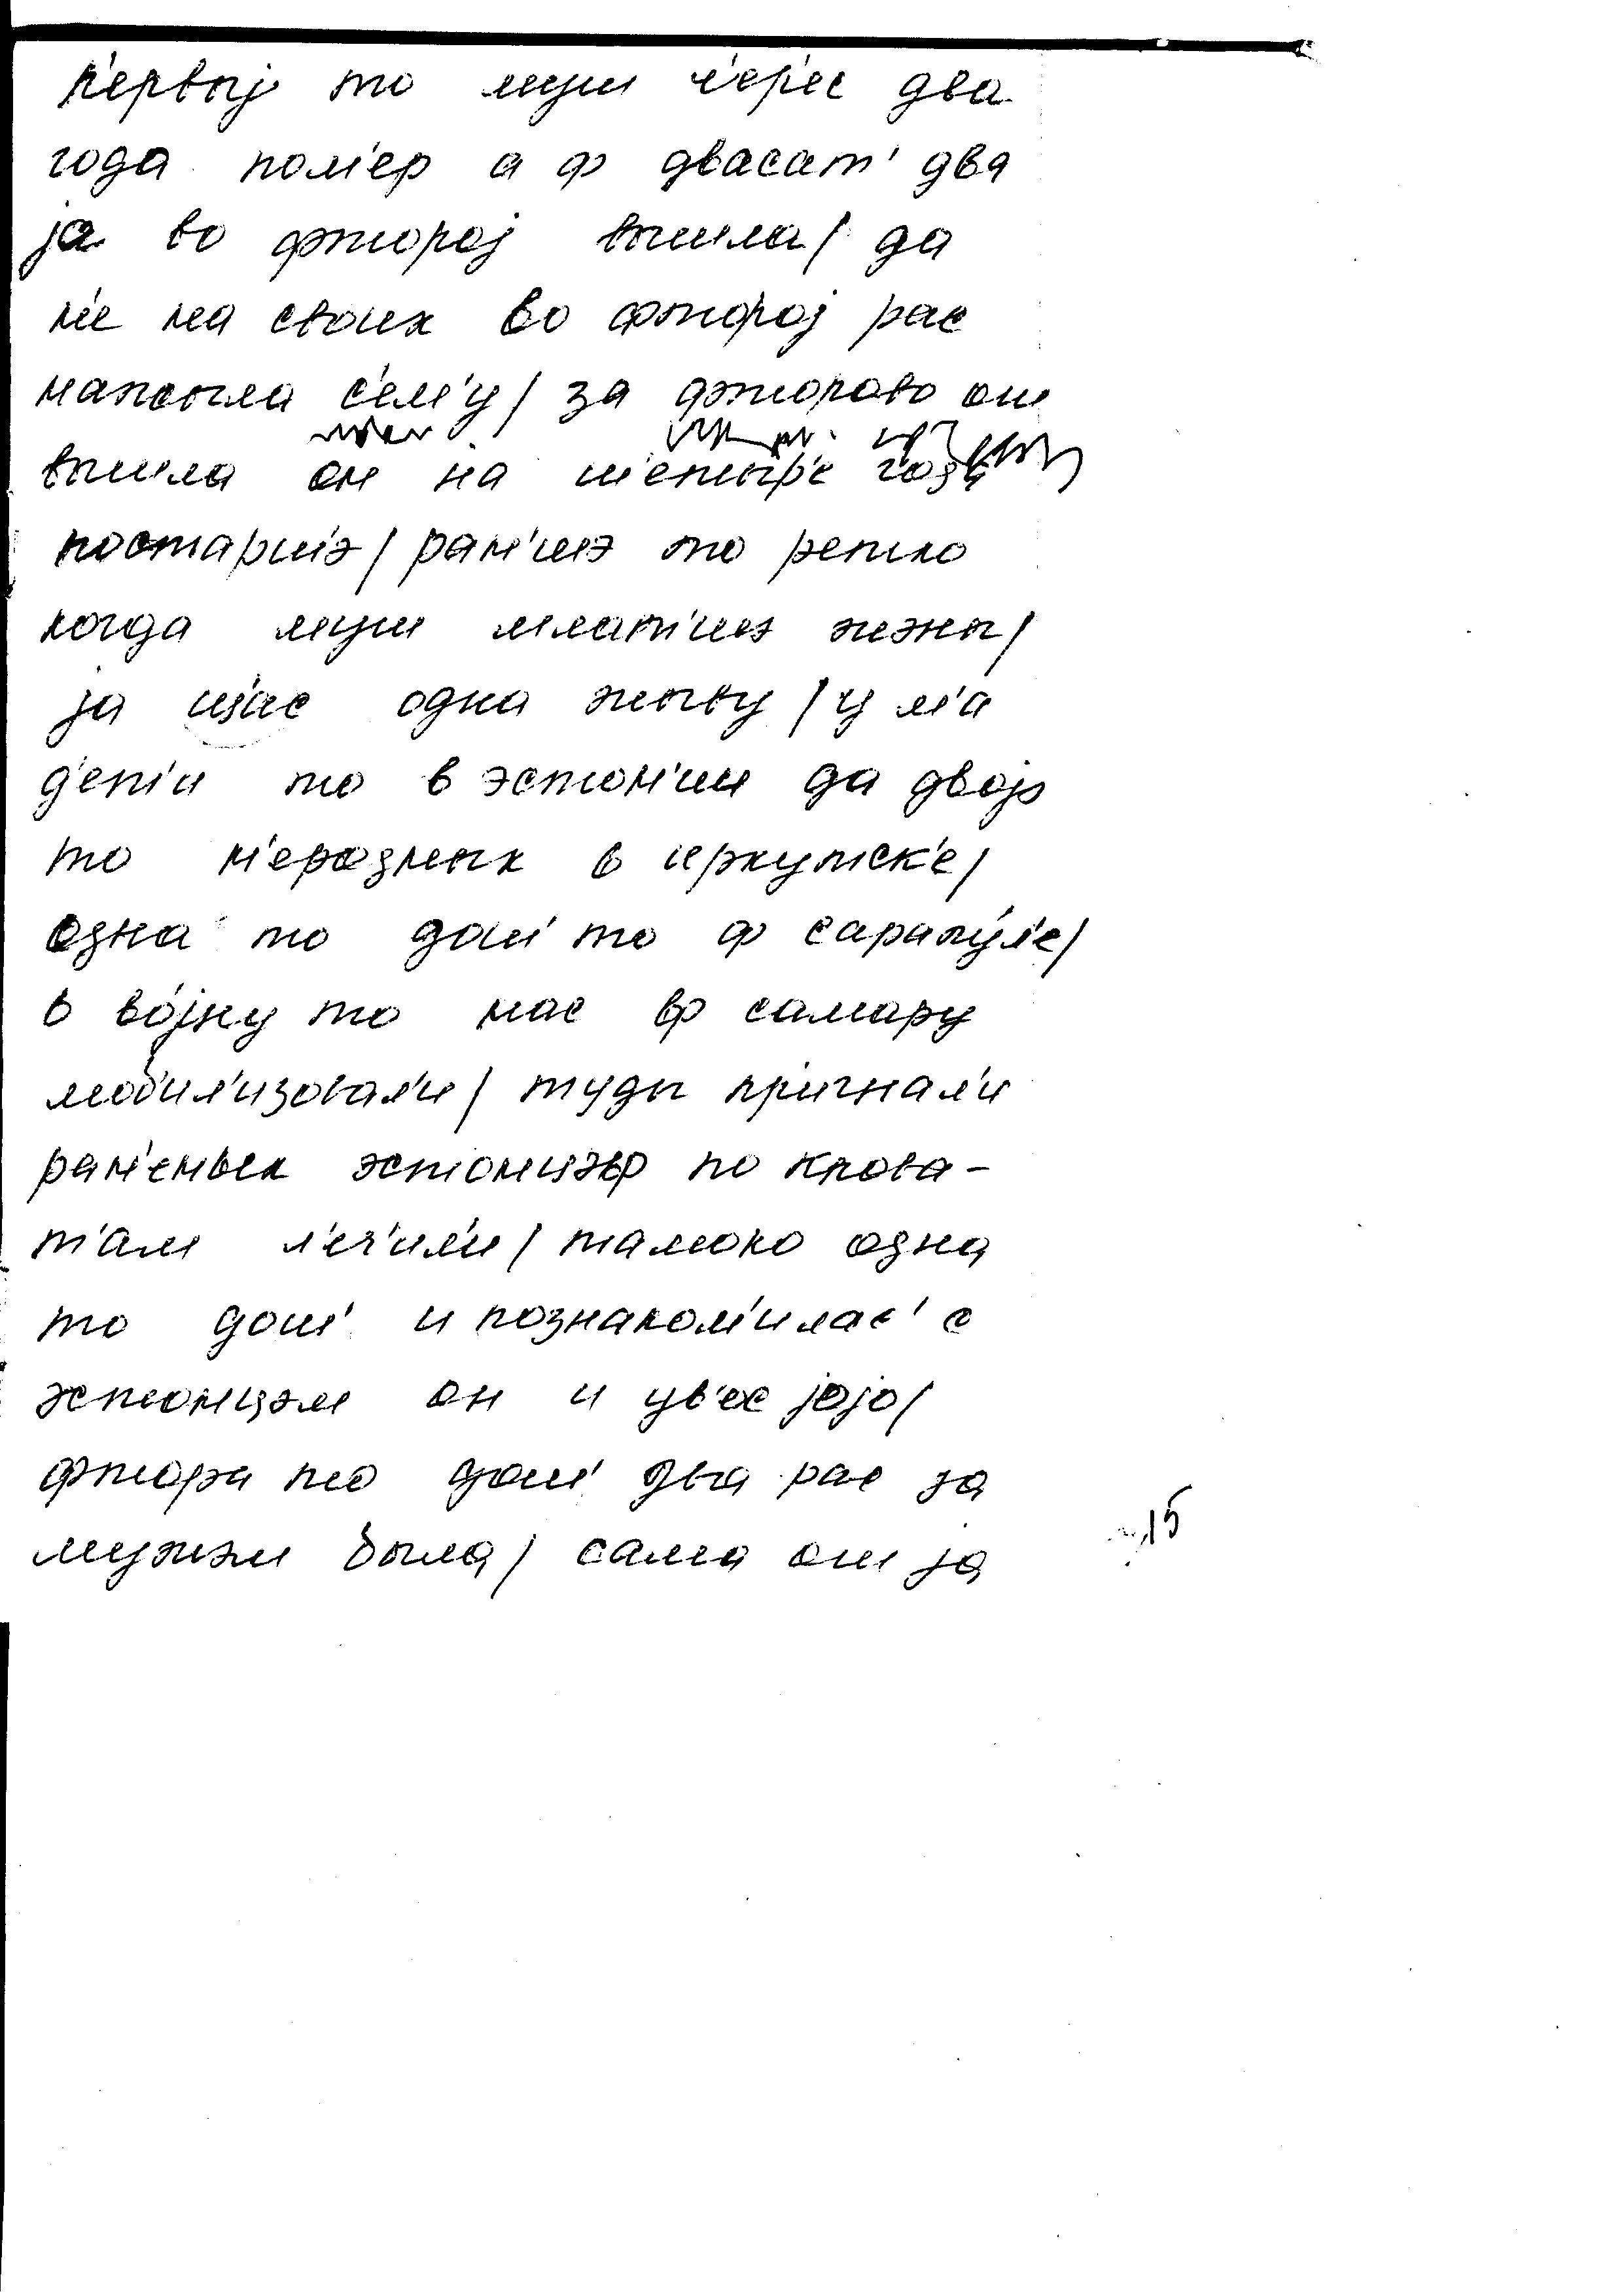 п'ервыј то муш ч'ер'ес два
года пом'ер а ф двасат' два
ја во фторој вышла / да
н'е на својих во фторој рас
нажыла с'ем'у / за фторово ош
вышла он на ш'етыр'е года
постаршэ / ран'шэ то ретко
когда муш млатшэ жэны /
ја шас одна жыву / у м'а
д'ет'и то в эстон'ии да двојо
то н'ероднык в иркутск'е /
одна то дош' то ф сарапу́л'е /
в во́јну то нас ф самару
моб'ил'изовал'и / туды пр'игнал'и
ран'еных эстонцэф по крова-
т'ам л'еч'ил'и / тамоко одна
то дош' и познаком'илас' с
эстонцэм он и ув'ес јојо /
фтора то дош' два рас за
мужэм была / сама ош ја
15